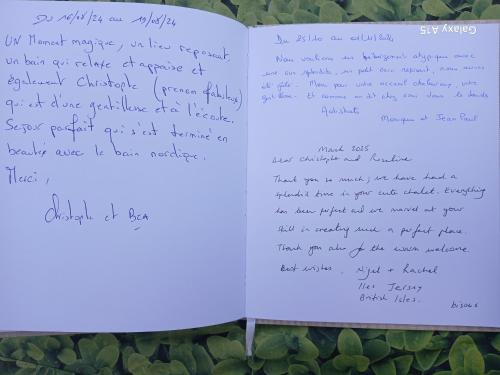 DU 16/08/24 au 19/08/24
UN Moment magique, un lieu reposant,
un bain qui relaxe et appaise et
également Christophe (prenom fabuleux)
qui est d'une gentillesse et à l'écoute.
Sejour parfait qui s'est terminé en
beauté avec le bain nordique.
Merci,
Christophe et BEA
Galaxy A15
Du 25/10 au
Nous voulions un hébergement atypique avec
une vue splendide, un petit coin reposant, nous avons
été gâtés. Merci pour votre accueil chaleureux, votre
gentillesse. Et comme on dit chez nous dans le
Monique et Jean Paul
March 2025
Dear Christophe and
Thank you so much; we have had a
splendid time in your cute chalet. Everything
has been perfect and we marvel at your
skill in creating such a perfect place.
Thank you also for the warm welcome.
Best wishes, Nigel + Rachel
Iles Jersey
British Isles.
bisous